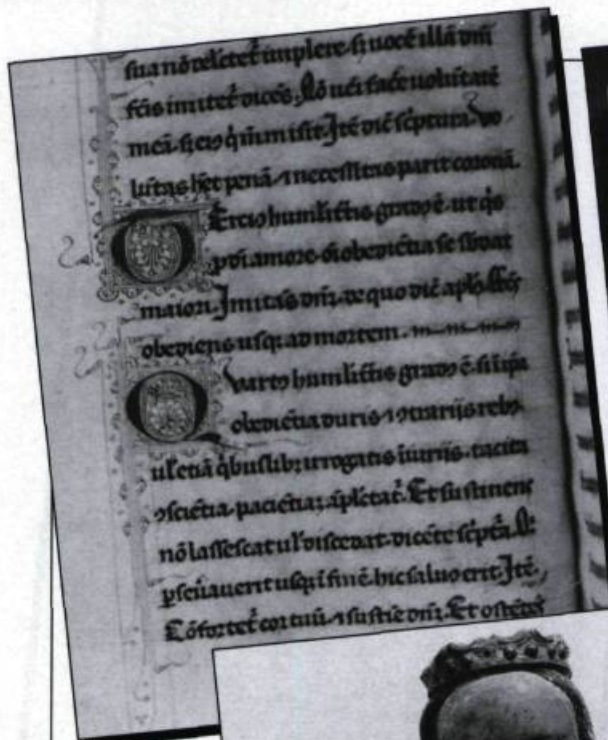 sua nō delectet̄ implere. si uocē illā dn̄i
fc̄is imitet̄ dicēs. Nō ueī facē uolūtatē
meā. s; eiꝰ q̇ m̄ misit. Itē dic̄ sc̄ptura. Vo
lūtas hēt penā. ⁊ necessitas parit coronā.
Terciꝰ humilit̄is gradꝰ ē. ut q̇s
ꝓ di amore. oī obediētia se sb̄dat
maiori. Imitās dn̄m. de quo dic̄ apl̄s. fc̄s
obediens usq; ad mortem.
Quartꝰ humilit̄is gradꝰ ē. si ī ipa
obediētia duris ⁊ ꝯtrarijs rebꝰ
ul̄ etiā q̇buslib; irrogatis iiuriis. tacita
ꝯsciētia. paciētiā āplectat̄. Et sustinens
nō lassescat ul̄ discedat. dicēte sc̄pta.
ꝑseuauerit usq; ī finē. hic saluꝰ erit. Itē.
Cōfortet̄ cor tuū. ⁊ sustīe dn̄m. Et